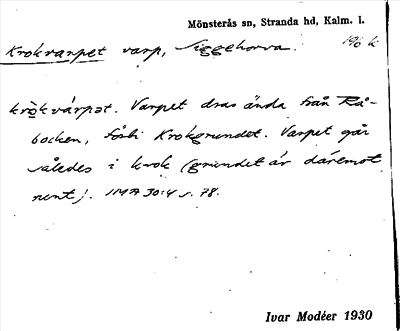 Mönsterås sn, Stranda hd, Kalm. l.
Krokvarpet varp, Siggehorva.
kròkvárpət. Varpet dras ända från Rå-
bocken, förbi Krokgrundet. Varpet går
således i krok (grundet är däremot
rent). IMA 30:4 s. 78.
Ivar Modéer 1930